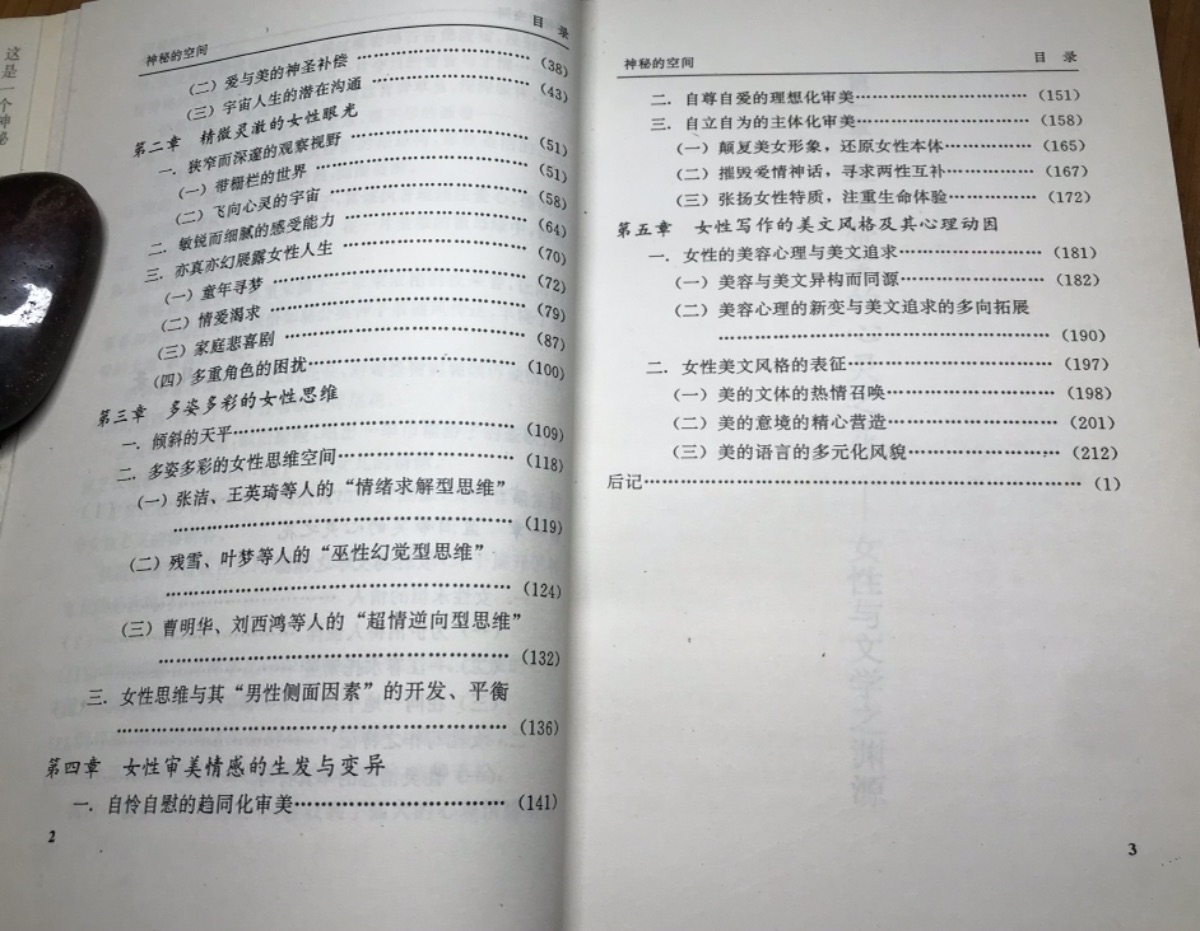 这是一个神秘
神秘的空间 目 录
（二）爱与美的神圣补偿 ……………………………（38）
（三）宇宙人生的潜在沟通 …………………………（43）
第二章 精微灵澈的女性眼光
一. 狭窄而深邃的观察视野 …………………………（51）
（一）带栅栏的世界 …………………………………（51）
（二）飞向心灵的宇宙 ………………………………（58）
二. 敏锐而细腻的感受能力 …………………………（64）
三. 亦真亦幻展露女性人生 …………………………（70）
（一）童年寻梦 ………………………………………（72）
（二）情爱渴求 ………………………………………（79）
（三）家庭悲喜剧 ……………………………………（87）
（四）多重角色的困扰…………………………………（100）
第三章 多姿多彩的女性思维
一. 倾斜的天平…………………………………………（109）
二. 多姿多彩的女性思维空间…………………………（118）
（一）张洁、王英琦等人的“情绪求解型思维”
………………………………………………………（119）
（二）残雪、叶梦等人的“巫性幻觉型思维”
………………………………………………………（124）
（三）曹明华、刘西鸿等人的“超情逆向型思维”
………………………………………………………（132）
三. 女性思维与其“男性侧面因素”的开发、平衡
………………………………………………………（136）
第四章 女性审美情感的生发与变异
一. 自怜自慰的趋同化审美……………………………（141）
2
神秘的空间 目 录
二. 自尊自爱的理想化审美……………………………（151）
三. 自立自为的主体化审美……………………………（158）
（一）颠复美女形象，还原女性本体………………（165）
（二）摧毁爱情神话，寻求两性互补………………（167）
（三）张扬女性特质，注重生命体验………………（172）
第五章 女性写作的美文风格及其心理动因
一. 女性的美容心理与美文追求………………………（181）
（一）美容与美文异构而同源………………………（182）
（二）美容心理的新变与美文追求的多向拓展
………………………………………………………（190）
二. 女性美文风格的表征………………………………（197）
（一）美的文体的热情召唤…………………………（198）
（二）美的意境的精心营造…………………………（201）
（三）美的语言的多元化风貌………………………（212）
后记……………………………………………………（1）
3